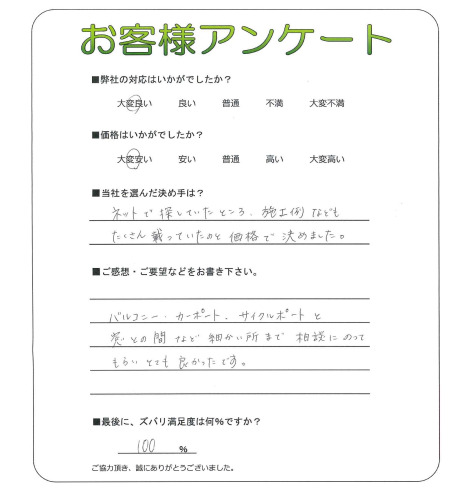 お客様アンケート
■弊社の対応はいかがでしたか？
大変良い 良い 普通 不満 大変不満
■価格はいかがでしたか？
大変安い 安い 普通 高い 大変高い
■当社を選んだ決め手は？
ネットで探していたところ、施工例なども
たくさん載っていたのと価格で決めました。
■ご感想・ご要望などをお書き下さい。
バルコニー・カーポート、サイクルポートと
窓との間など細かい所まで相談にのって
もらいとても良かったです。
■最後に、ズバリ満足度は何%ですか？
100 %
ご協力頂き、誠にありがとうございました。